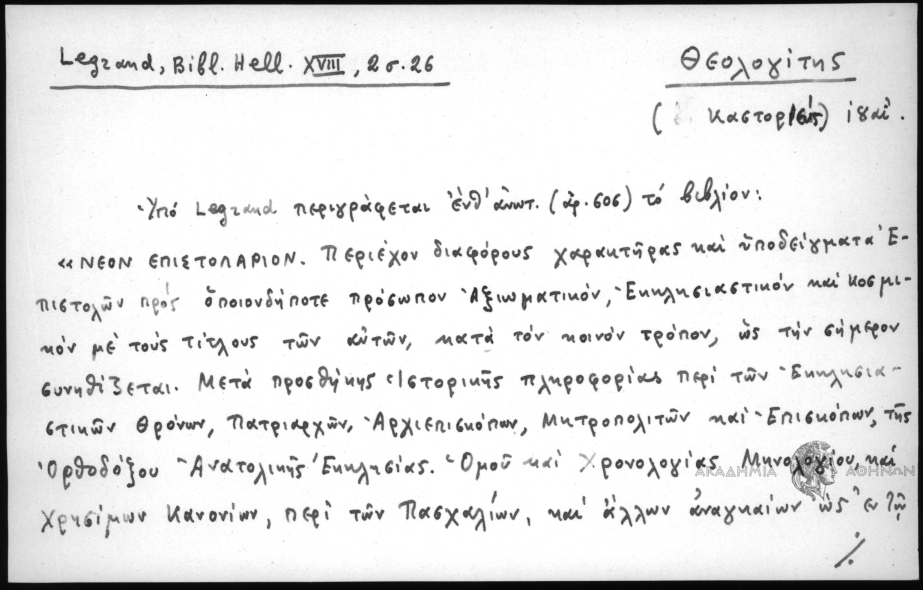 Legrand, Bibl. Hell. XVIII, 2 σ. 26
Θεολογίτης
( Καστορ ) ἰδαί.
Ὑπό Legrand περιγράφεται ἐνθ' ἀνωτ. (ἀρ. 605) τό βιβλίον:
«ΝΕΟΝ ΕΠΙΣΤΟΛΑΡΙΟΝ. Περιέχον διαφόρους χαρακτῆρας καί ὑποδείγματα Ἐ-
πιστολῶν πρός ὁποιονδήποτε πρόσωπον Ἀξιωματικόν, Ἐκκλησιαστικόν καί κοσμι-
κόν μέ τούς τίτλους τῶν αὐτῶν, κατά τόν κοινόν τρόπον, ὡς τήν σήμερον
συνηθίζεται. Μετά προσθήκης Ἱστορικῆς πληροφορίας περί τῶν Ἐκκλησια-
στικῶν Θρόνων, Πατριαρχῶν, Ἀρχιεπισκόπων, Μητροπολιτῶν καί Ἐπισκόπων, τῆς
Ὀρθοδόξου Ἀνατολικῆς Ἐκκλησίας. Ὁμοῦ καί Χρονολογίας Μηνολογίου, καί
ΑΚΑΔΗΜΙΑ ΑΘΗΝΩΝ
Χρησίμων Κανονίων, περί τῶν Πασχαλίων, καί ἄλλων ἀναγκαίων ὡς ἐν τῇ
./.